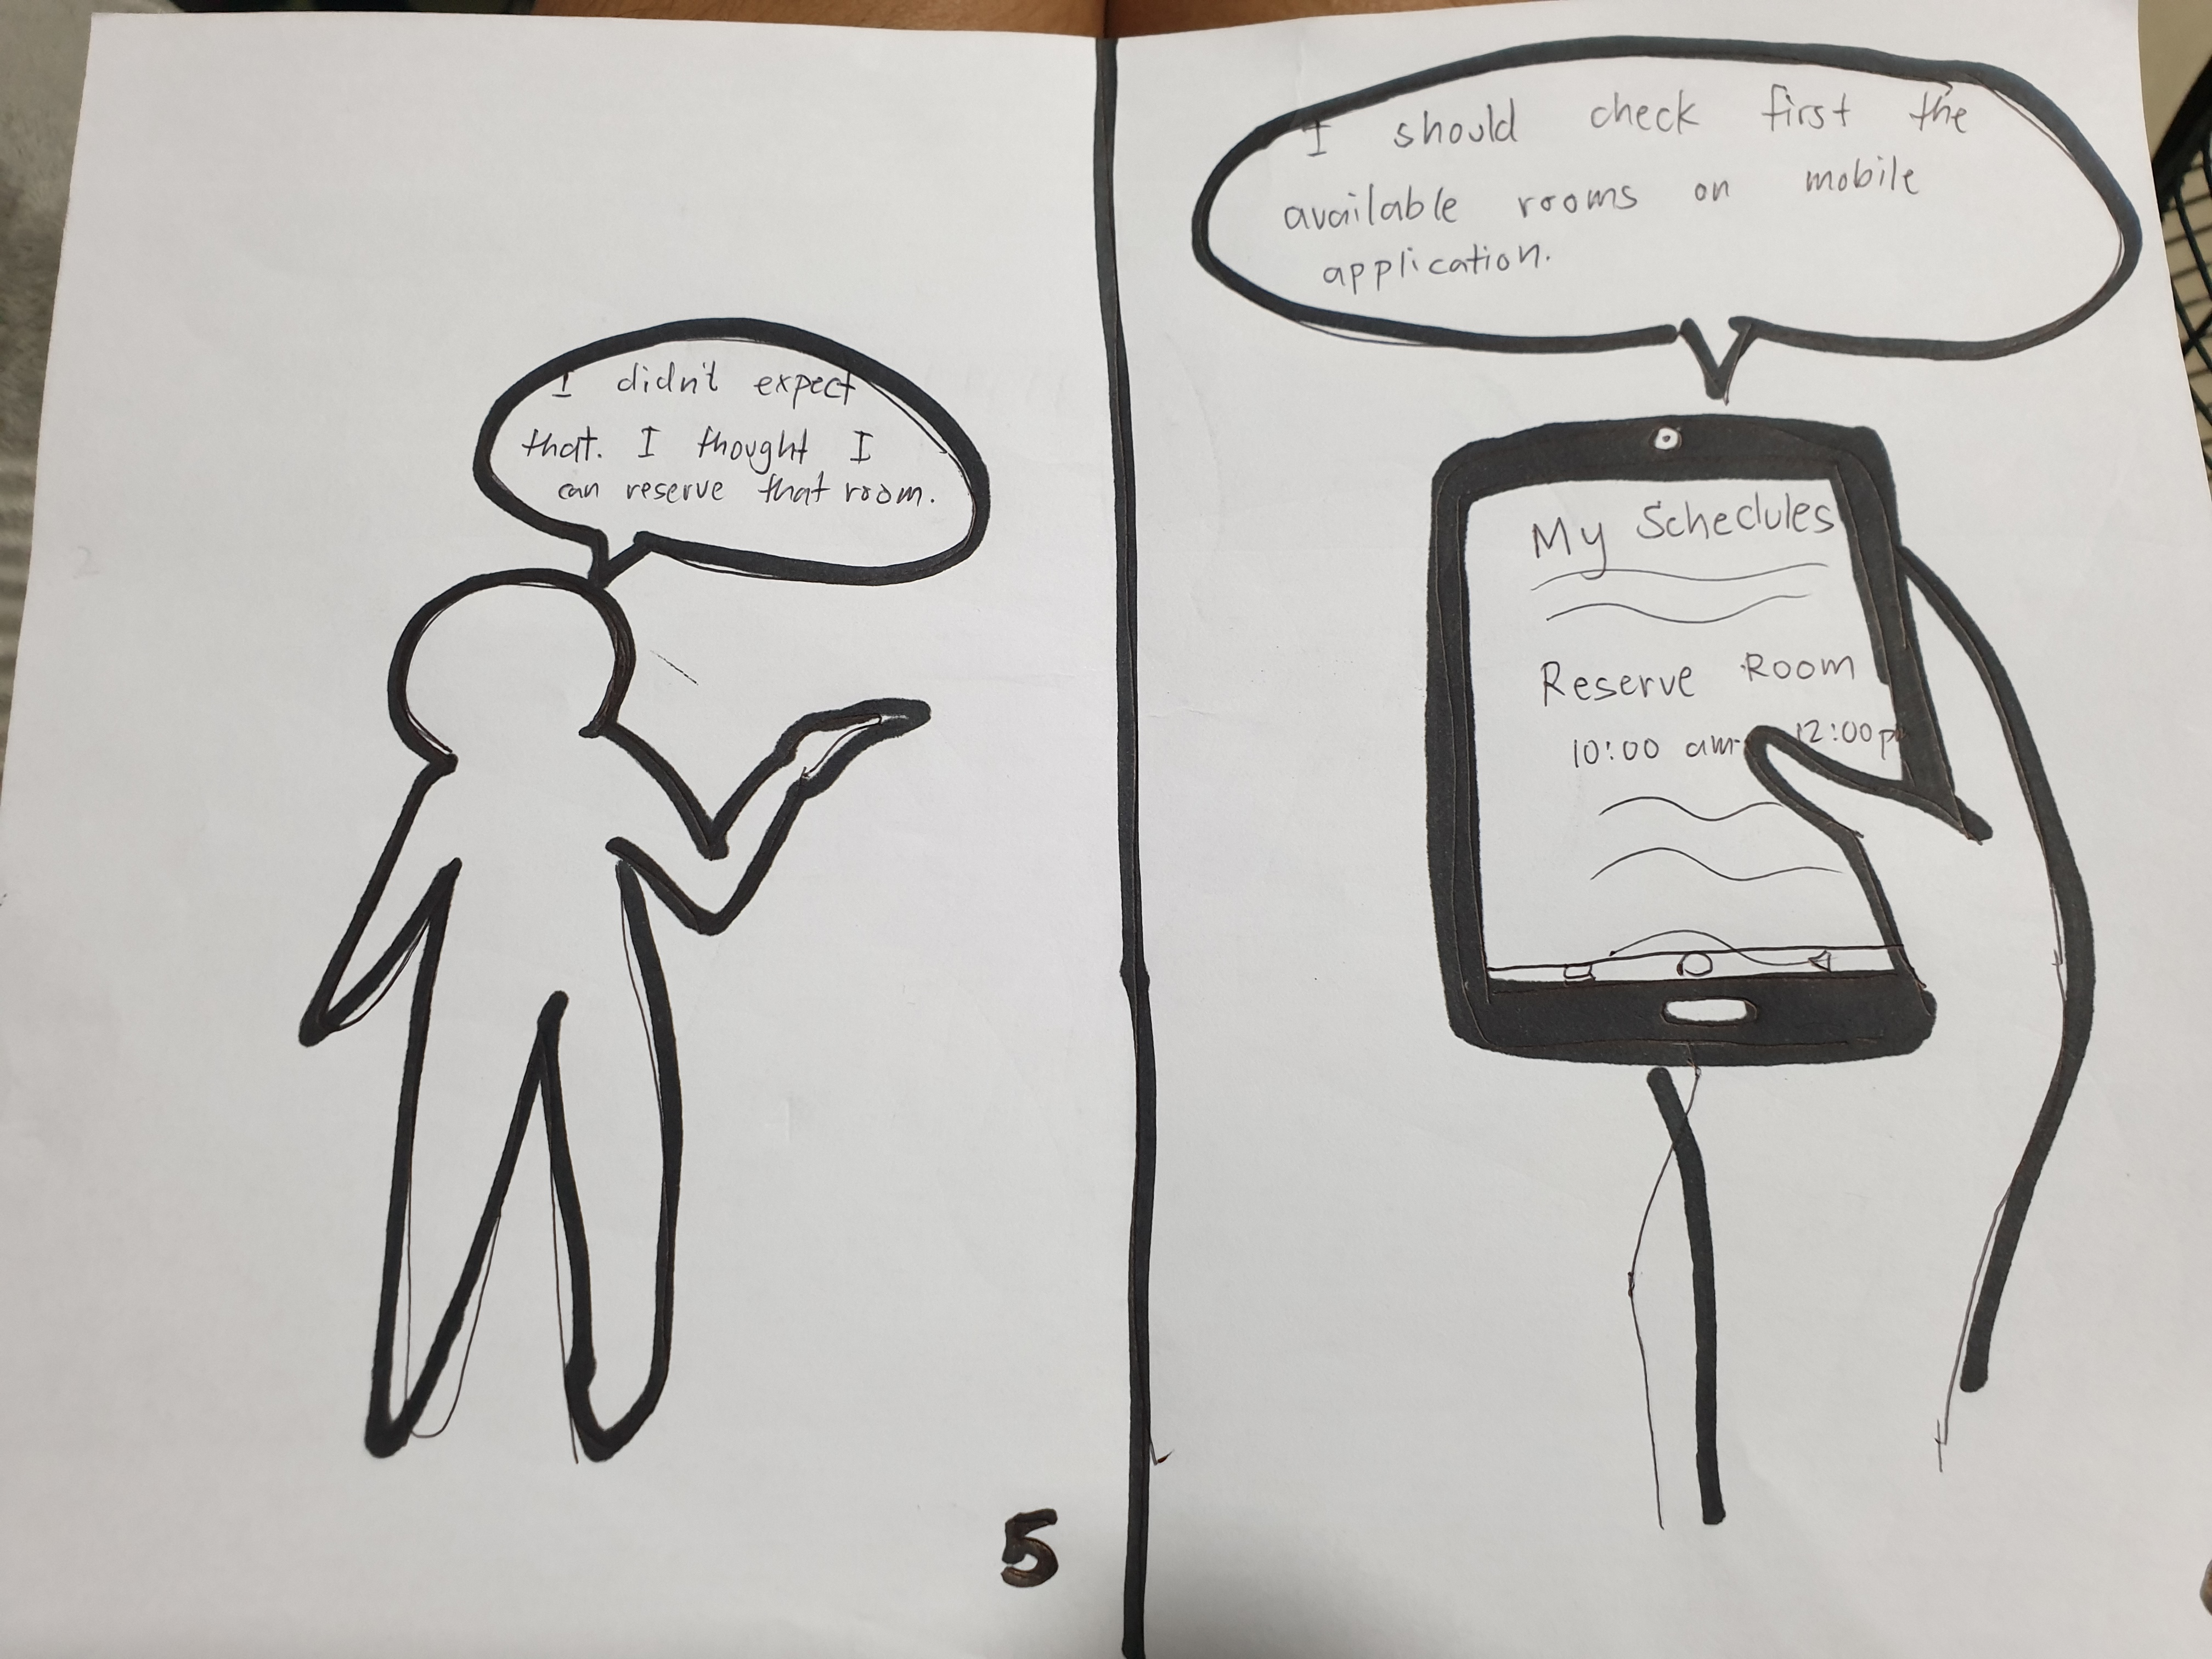 I didn't expect
that. I thought I
can reserve that room.
5
I should check first the
available rooms on mobile
application.
My Schedules
Reserve Room
10:00 am- 12:00p